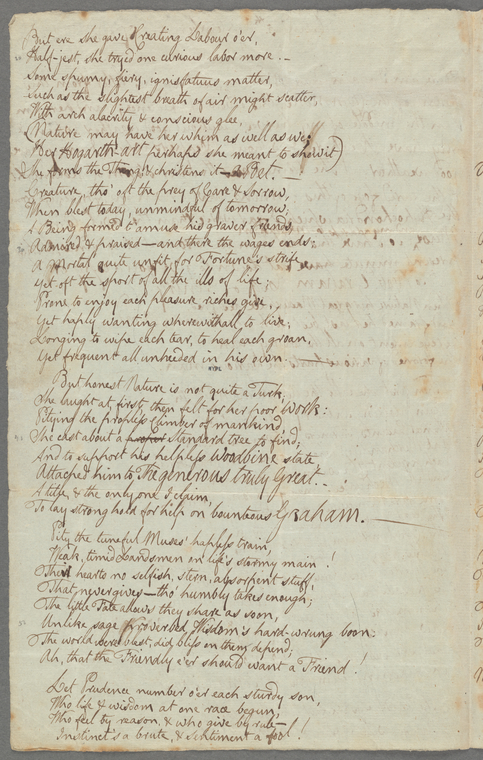 But ere she give Creating Labour o'er,
Half-jest, she tryed one curious labor more. —
Some spumy, fiery, ignisfatuus matter,
Such as the slightest breath of air might scatter,
With arch alacrity & conscious glee,
(Nature may have her whim as well as we;
Her Hogarth-art perhaps she meant to show it)
She forms the Thing & christens it — a Poet. —
Creature, tho' oft the prey of Care & Sorrow,
When blest today, unmindful of tomorrow;
A Being formed t' amuse his graver friends,
Admired & praised — and there the wages ends;
A Mortal quite unfit for Fortune's strife,
Yet oft the sport of all the ills of life;
Prone to enjoy each pleasure riches give,
Yet haply wanting wherewithall to live;
Longing to wipe each tear, to heal each groan,
Yet frequent all unheeded in his own. —
But honest Nature is not quite a Turk;
She laught at first, then felt for her poor Work:
Pitying the propless Climber of mankind,
She cast about a proper standard tree to find;
And to support his helpless Woodbine state
Attached him to The generous truly Great. —
A title, & the only one I claim,
To lay strong hold for help on bounteous Graham. —
Pity the tuneful Muses' hapless train,
Weak, timid Landsmen on life's stormy main!
Their hearts no selfish, stern, absorpent stuff,
That never gives — tho' humbly takes enough;
The little Fate allows they share as soon,
Unlike sage Proverbed Wisdom's hard-wrung boon:
The world were blest, did bliss on them depend,
Ah, that the Friendly e'er should want a Friend!
Let Prudence number o'er each sturdy son,
Who life & wisdom at one race begun,
Who feel by reason, & who give by rule —
Instinct's a brute, & Sentiment a fool!